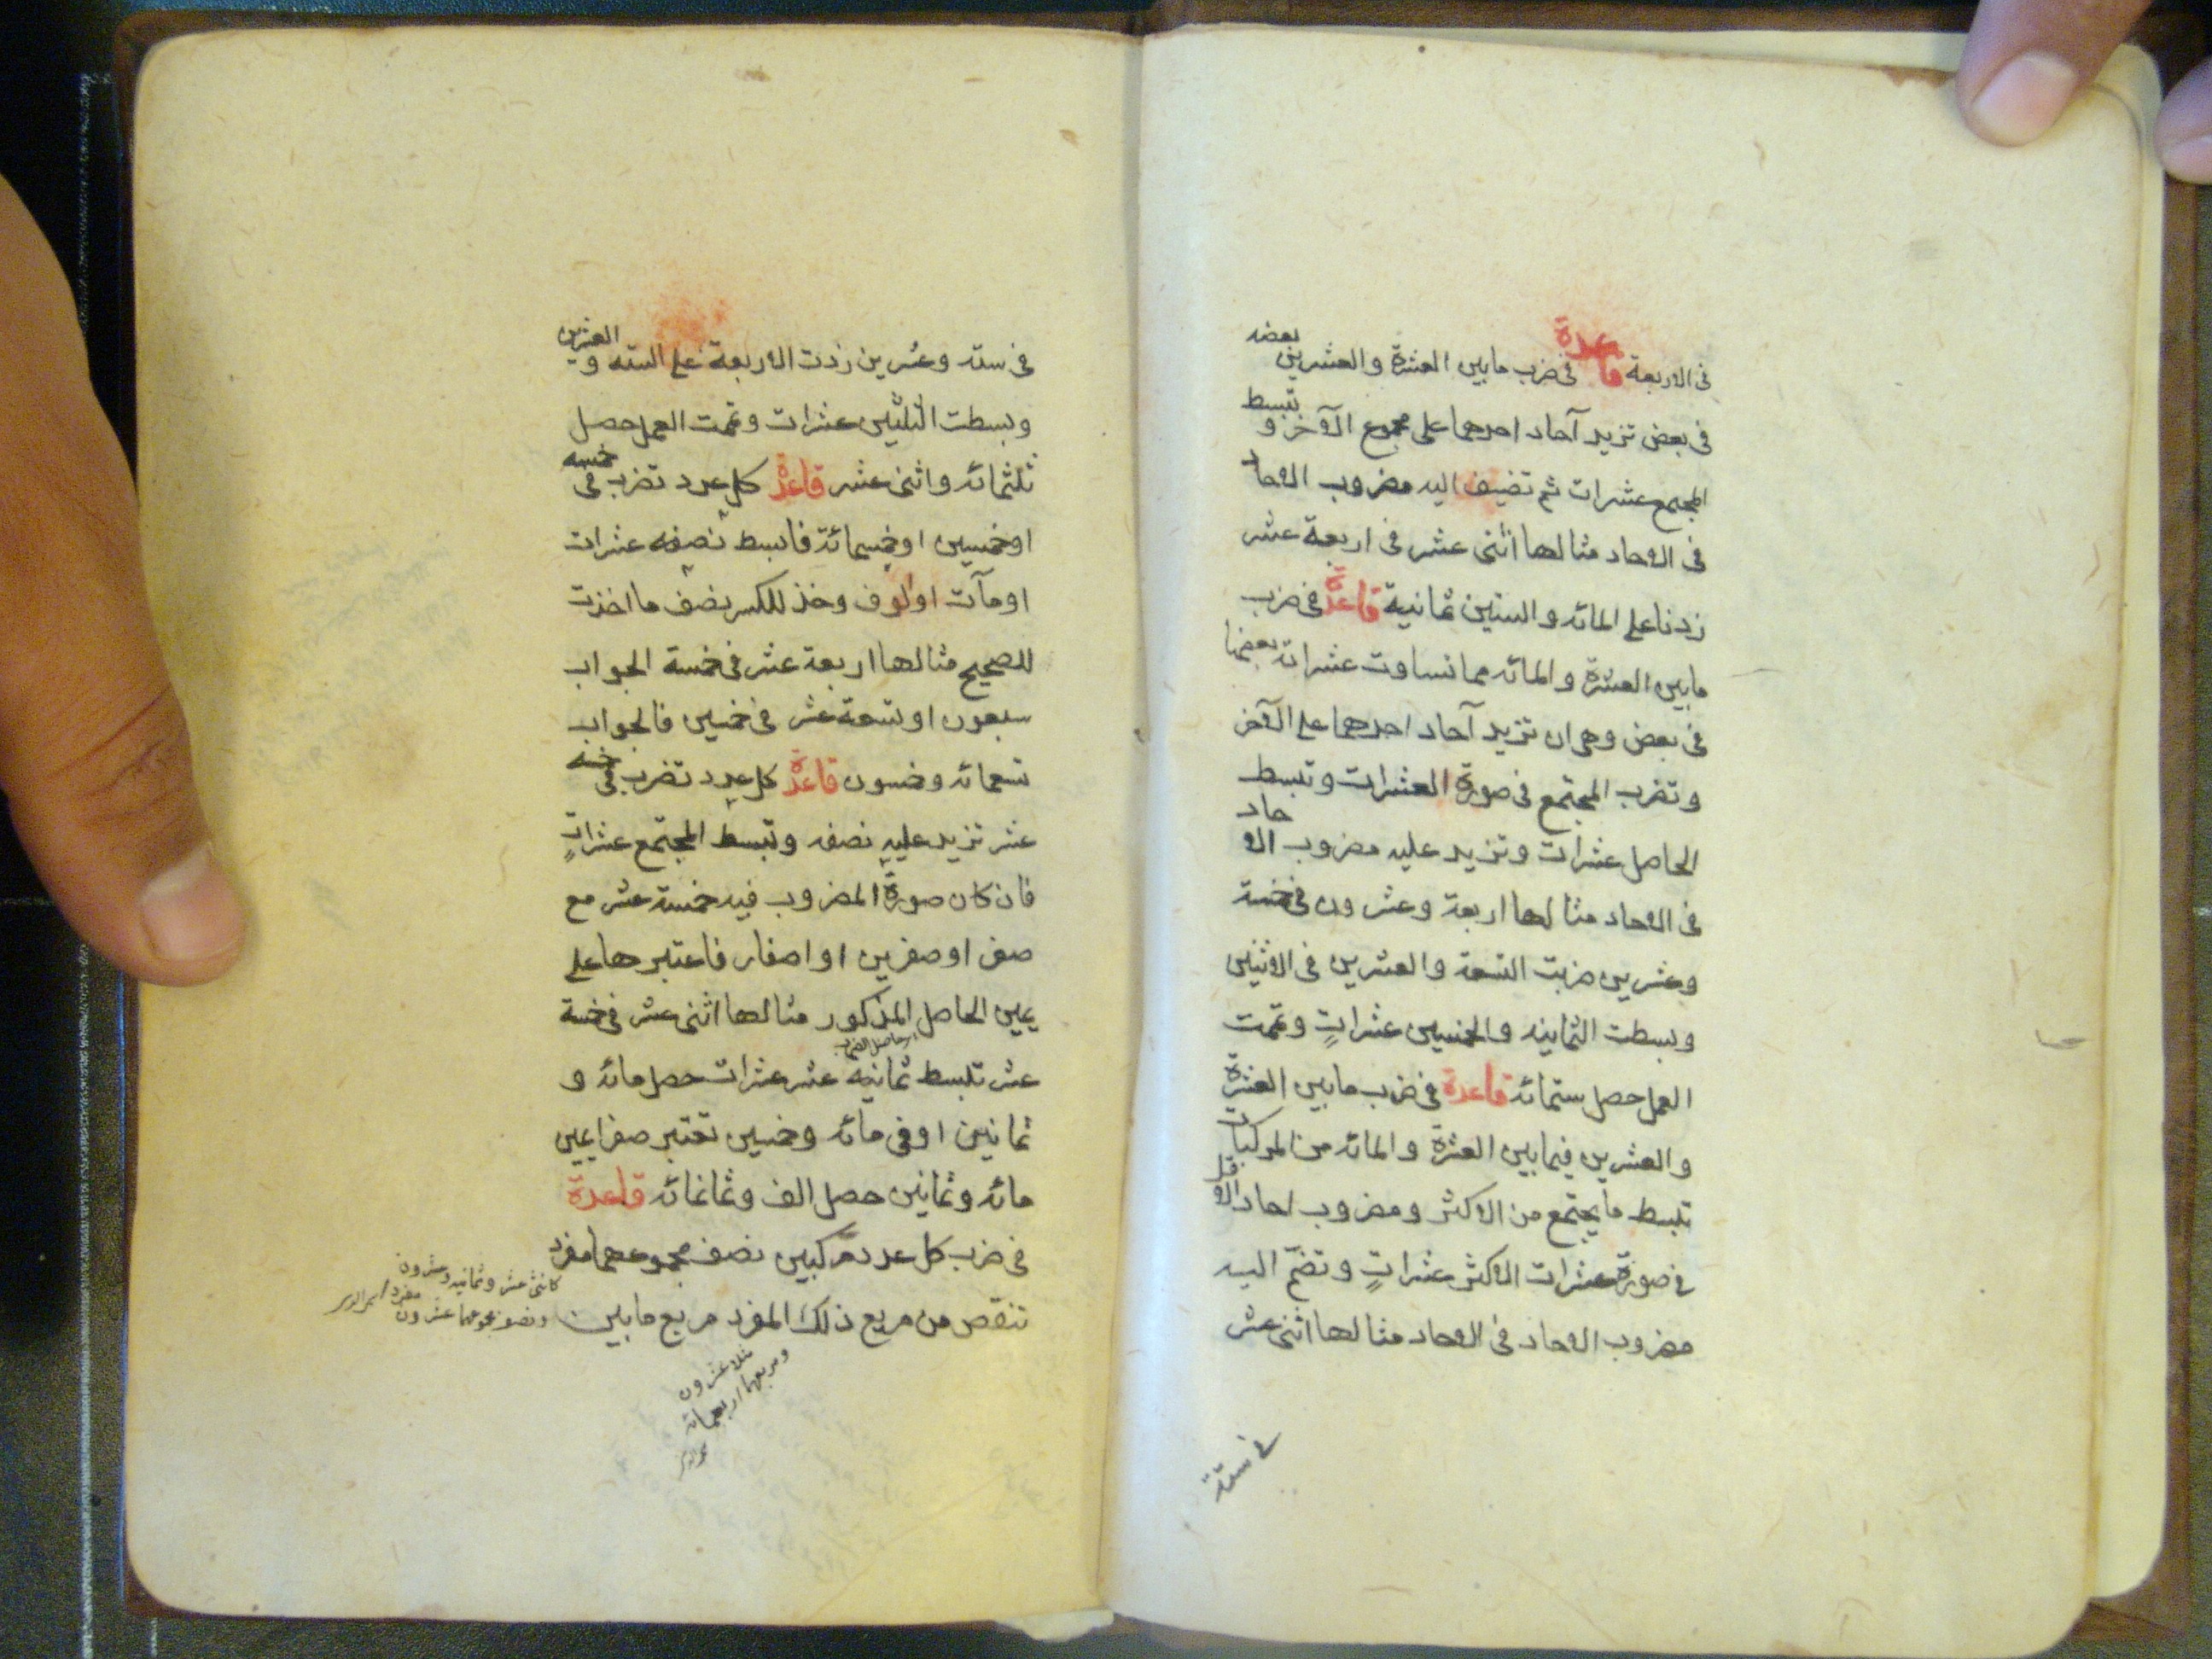 فى الاربعة قاعدة فى ضرب ما بين العشرة والعشرين بعضه
فى بعض تزيد آحاد احدهما على مجموع الآخر و تبسط
المجتمع عشرات ثم تضيف اليه مضروب الاحاد
فى الاحاد مثالها اثنى عشر فى اربعة عشر
زدنا على المائه والستين ثمانية قاعدة فى ضرب
ما بين العشرة والمائه مما تساوت عشراته بعضها
فى بعض وهى ان تزيد آحاد احدهما على الآخر
وتضرب المجتمع فى صورة العشرات وتبسط
الحاصل عشرات وتزيد عليه مضروب الاحاد
فى الاحاد مثالها اربعة وعشرون فى خمسة
وعشرين ضربت التسعة والعشرين فى الاثنين
وبسطت الثمانيه والخمسين عشراتٍ وتممت
العمل حصل ستمائه قاعدة فى ضرب ما بين العشرة
والعشرين فيما بين العشرة والمائه من المركبات
تبسط ما يجتمع من الاكثر ومضروب احاد الاقل
فى صورة عشرات الاكثر عشراتٍ وتضمّ اليه
مضروب الاحاد فى الاحاد مثالها اثنى عشر
فى ستة
فى سته وعشرين زدت الاربعة على السته و العشرين
وبسطت الثلثين عشرات وتممت العمل حصل
ثلثمائه واثنى عشر قاعدة كل عدد تضرب فى خمسه
او خمسين او خمسمائة فابسط نصفه عشرات
او مآت او الوف وخذ للكسر نصف ما اخذت
للصحيح مثالها اربعة عشر فى خمسة الجواب
سبعون او تسعة عشر فى خمسين فالجواب
تسعمائه وخمسون قاعدة كل عدد تضرب فى خمسه
عشر تزيد عليه نصفه وتبسط المجتمع عشراتٍ
فان كان صورة المضروب فيه خمسة عشر مع
صفر او صفرين او اصفار فاعتبرها على
يمين الحاصل المذكور مثالها اثنى عشر فى خمسة
حاصل الضرب
عشر تبسط ثمانيه عشر عشرات حصل مائه و
ثمانين او فى مائه وخمسين تعتبر صفرا يمين
مائه وثمانين حصل الف وثمانمائه قاعدة
فى ضرب كل عدد مركبين نصف مجموعهما مفرد
تنقص من مربع ذلك المفرد مربع ما بين
كاثنى عشر وثمانيه وعشرون
ونصف مجموعهما عشرون مفرد
مثلا عشرون
ومربعها اربعمائه